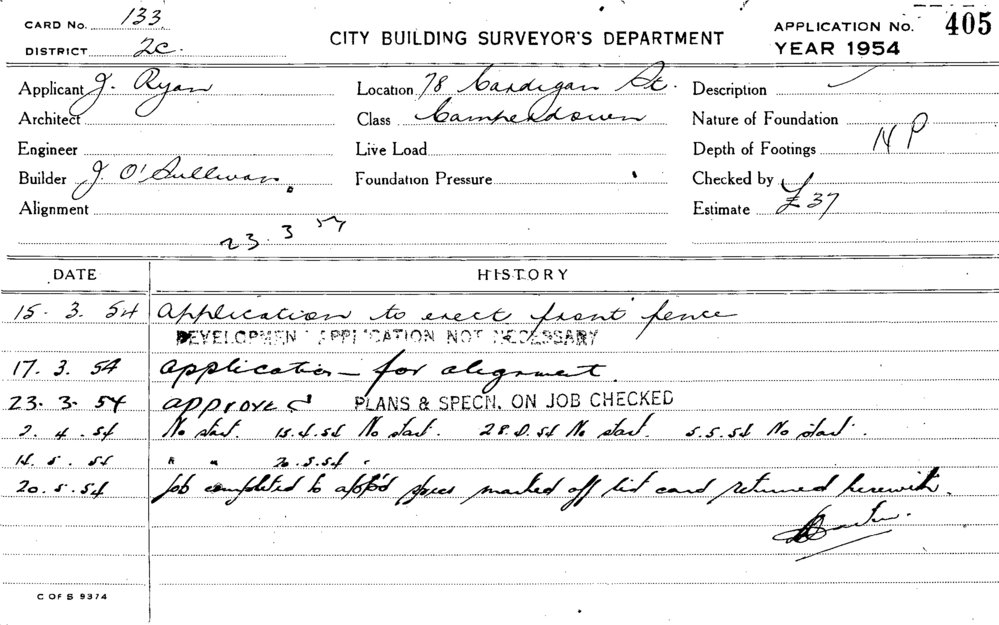 CARD No. 133
DISTRICT 2c.
CITY BUILDING SURVEYOR'S DEPARTMENT
APPLICATION No. 405
YEAR 1954
Applicant J. Ryan
Location 78 Cardigan St.
Description
Architect
Class Camperdown
Nature of Foundation
Engineer
Live Load
Depth of Footings N P
Builder J. O'Sullivan.
Foundation Pressure
Checked by
Alignment
Estimate £37
23. 3 54
DATE HISTORY
15. 3. 54 Application to erect front fence
DEVELOPMENT APPLICATION NOT NECESSARY
17. 3. 54 Application for alignment.
23. 3. 54 Approved PLANS & SPECN. ON JOB CHECKED
2. 4. 54 No start. 15.4.54 No start. 28.4.54 No start. 5.5.54 No start.
14. 5. 54 " " 20.5.54
20. 5. 54 Job completed to app'd specs marked off card returned herewith.
C OF S 9374